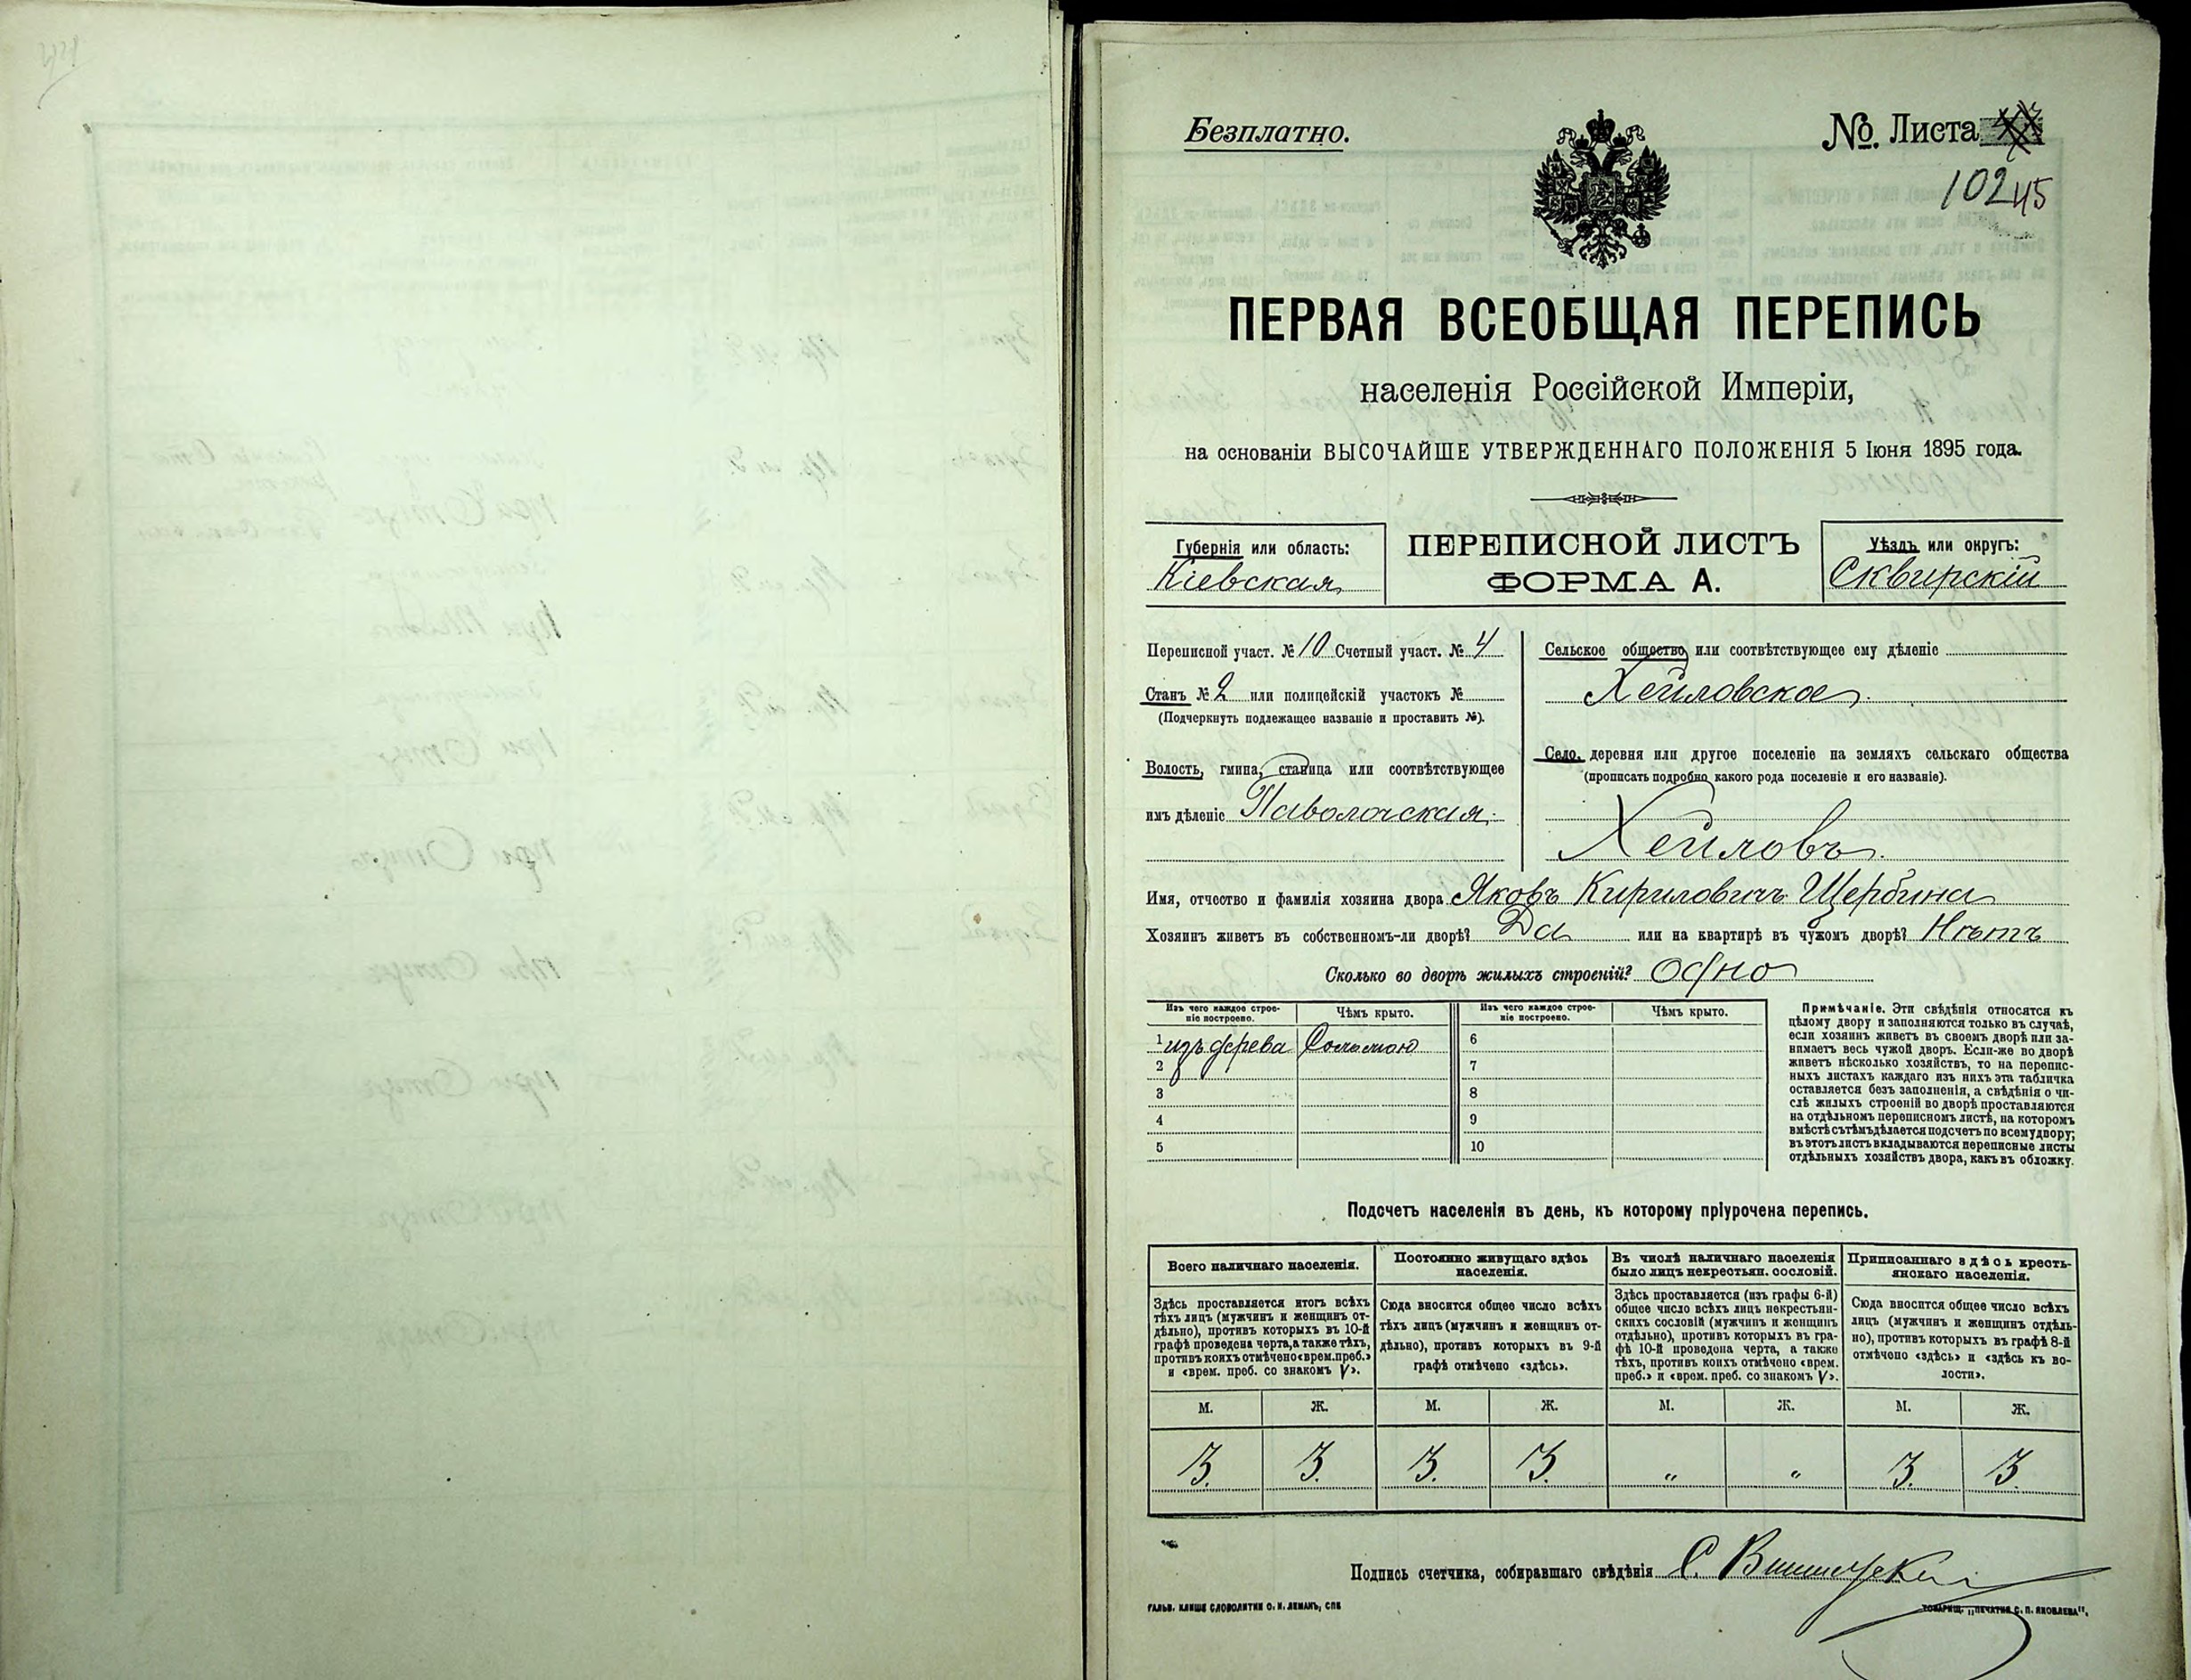 Безплатно.
№. Листа
102 45
ПЕРВАЯ ВСЕОБЩАЯ ПЕРЕПИСЬ
населенія Россійской Имперіи,
на основаніи ВЫСОЧАЙШЕ УТВЕРЖДЕННАГО ПОЛОЖЕНІЯ 5 Іюня 1895 года.
Губернія или область:
Кіевская
ПЕРЕПИСНОЙ ЛИСТЪ
ФОРМА А.
Уѣздъ или округъ:
Сквирскій
Переписной участ. № 10 Счетный участ. № 4
Станъ № 2 или полицейскій участокъ №
(Подчеркнуть подлежащее названіе и проставить №).
Волость, гмина, станица или соотвѣтствующее
имъ дѣленіе Паволочская.
Сельское общество или соотвѣтствующее ему дѣленіе
Хейловское.
Село, деревня или другое поселеніе на земляхъ сельскаго общества
(прописать подробно какого рода поселеніе и его названіе).
Хейловъ.
Имя, отчество и фамилія хозяина двора Яковъ Кириловичъ Щербина
Хозяинъ живетъ въ собственномъ-ли дворѣ? Да или на квартирѣ въ чужомъ дворѣ? Нѣтъ
Сколько во дворѣ жилыхъ строеній? Одно
Изъ чего каждое строе-
ніе построено.
Чѣмъ крыто.
Изъ чего каждое строе-
ніе построено.
Чѣмъ крыто.
1 изъ дерева Соломою 6
2 7
3 8
4 9
5 10
Примѣчаніе. Эти свѣдѣнія относятся къ
цѣлому двору и заполняются только въ случаѣ,
если хозяинъ живетъ въ своемъ дворѣ или за-
нимаетъ весь чужой дворъ. Если-же во дворѣ
живетъ нѣсколько хозяйствъ, то на перепис-
ныхъ листахъ каждаго изъ нихъ эта табличка
оставляется безъ заполненія, а свѣдѣнія о чи-
слѣ жилыхъ строеній во дворѣ проставляются
на отдѣльномъ переписномъ листѣ, на которомъ
вмѣстѣ съ тѣмъ дѣлается подсчетъ по всему двору;
въ этотъ листъ вкладываются переписные листы
отдѣльныхъ хозяйствъ двора, какъ въ обложку.
Подсчетъ населенія въ день, къ которому пріурочена перепись.
Всего наличнаго населенія.
Здѣсь проставляется итогъ всѣхъ
тѣхъ лицъ (мужчинъ и женщинъ от-
дѣльно), противъ которыхъ въ 10-й
графѣ проведена черта, а также тѣхъ,
противъ коихъ отмѣчено «врем. преб.»
и «врем. преб. со знакомъ V».
Постоянно живущаго здѣсь
населенія.
Сюда вносится общее число всѣхъ
тѣхъ лицъ (мужчинъ и женщинъ от-
дѣльно), противъ которыхъ въ 9-й
графѣ отмѣчено «здѣсь».
Въ числѣ наличнаго населенія
было лицъ некрестьян. сословій.
Здѣсь проставляется (изъ графы 6-й)
общее число всѣхъ лицъ некрестьян-
скихъ сословій (мужчинъ и женщинъ
отдѣльно), противъ которыхъ въ гра-
фѣ 10-й проведена черта, а также
тѣхъ, противъ коихъ отмѣчено «врем.
преб.» и «врем. преб. со знакомъ V».
Приписаннаго здѣсь кресть-
янскаго населенія.
Сюда вносится общее число всѣхъ
лицъ (мужчинъ и женщинъ отдѣль-
но), противъ которыхъ въ графѣ 8-й
отмѣчено «здѣсь» и «здѣсь къ во-
лости».
М. Ж. М. Ж. М. Ж. М. Ж.
3. 3. 3. 3. " " 3. 3
Подпись счетчика, собиравшаго свѣдѣнія С.
ГАЛЬВ. КЛИШЕ СЛОВОЛИТНИ О. И. ЛЕМАНЪ, СПБ
ТОВАРИЩ. „ПЕЧАТНЯ С. П. ЯКОВЛЕВА".